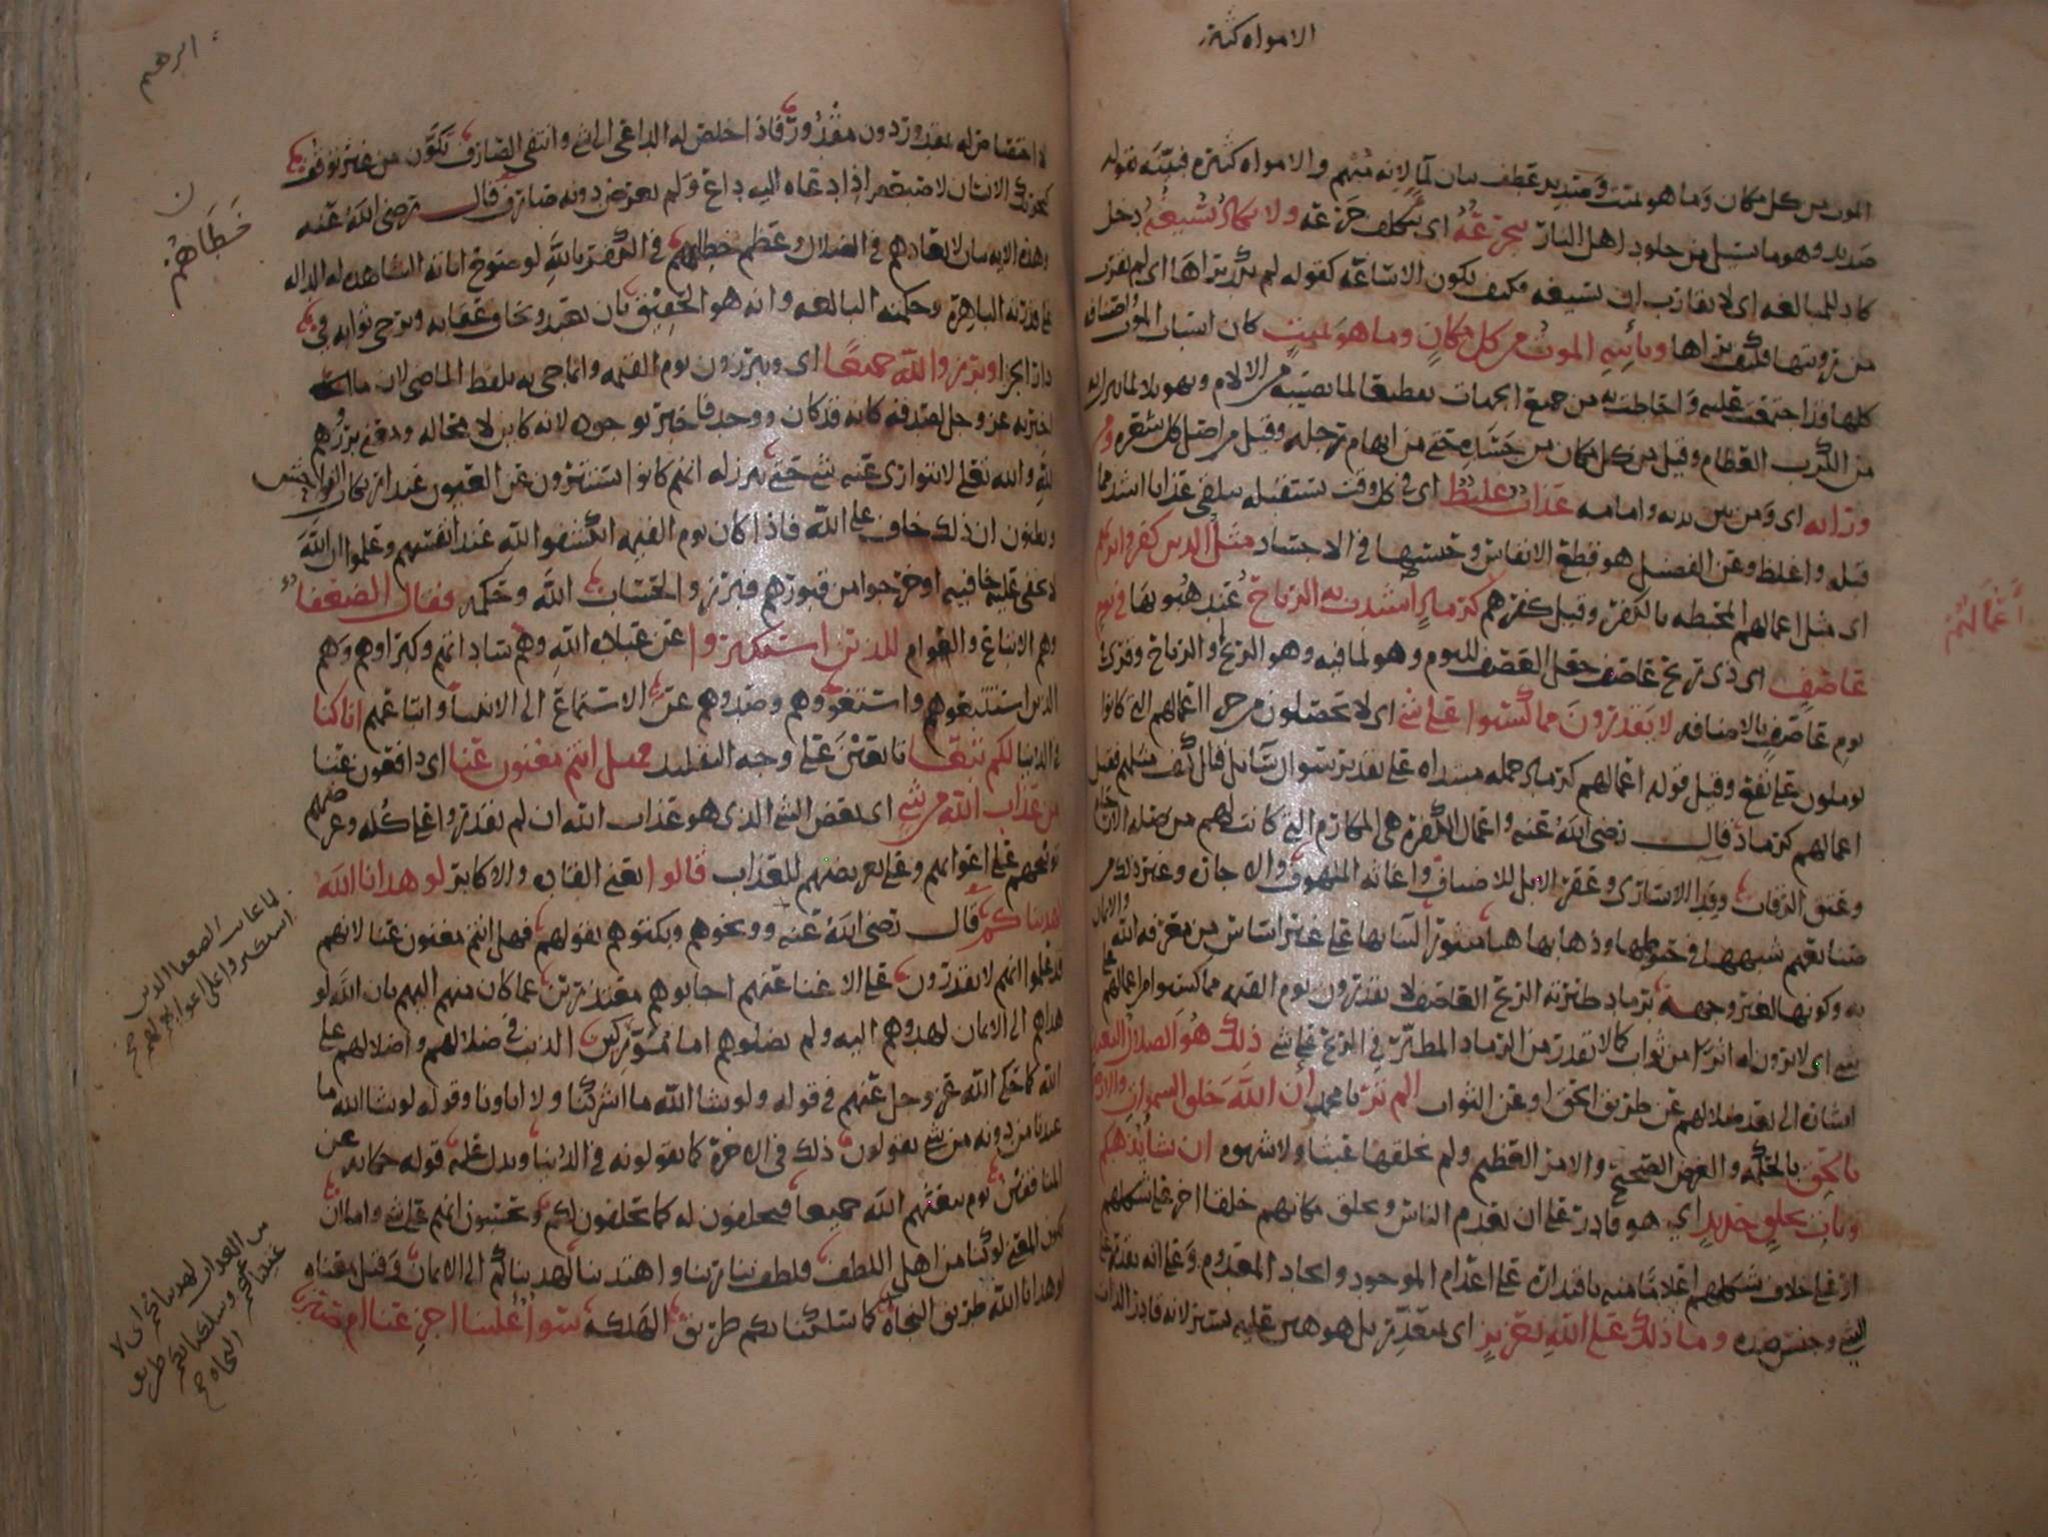 الامواه كثيرة
الموت من كل مكان وما هو بميت وصديد عطف بيان لماء لانه مبهم والامواه كثيرة فبينه بقوله
صديد وهو ما يسيل من جلود اهل النار يتجرعه اى يتكلف جرعه ولا يكاد يسيغه دخل
كاد للمبالغه اى لا يقارب ان يسيغه فكيف يكون الاساغه كقوله لم يكد يراها اى لم يقرب
من رويتها فكيف يراها وياتيه الموت من كل مكان وما هو بميت كان اسباب الموت اصنافه
كلها قد اجتمعت عليه واحاطت به من جميع الجهات تفظيعا لما يصيبه من الالام
من الكرب العظام وقيل من كل مكان من جسده حتى من ابهام رجله وقيل من اصل كل شعره ومن
ورائه اى ومن بين يديه وامامه عذاب غليظ اى فى كل وقت يستقبله يتلقى عذابا اشد مما
قبله واغلظ وعن الفضيل هو قطع الانفاس وحبسها فى الاجساد مثل الذين كفروا بربهم
اعمالهم
اى مثل اعمالهم المحبطه بالكفر وقيل كفرهم كرماد اشتدت به الرياح عند هبوبها فى يوم
عاصف اى ذى ريح عاصف جعل العصف لليوم وهو لما فيه وهو الريح او الرياح وقرئ
يوم عاصف بالاضافه لا يقدرون مما كسبوا على شى اى لا يحصلون من اعمالهم التى كانوا
يوملون على نفع وقيل قوله اعمالهم كرماد جمله مستانفه على تقدير سوال سائل قال كيف مثلهم فقيل
اعمالهم كرماد قال رضى الله عنه واعمال الكفرة هى المكارم التى كانت لهم من صله الارحام
وعتق الرقاب وفدا الاسارى وعقر الابل للاضياف واغاثه الملهوف والاجاره وغير ذلك من
صنايعهم شبهها فى حبوطها وذهابها هباء منثورا لبنائها على غير اساس من معرفه الله والايمان
به وكونها لغير وجهه برماد طيرته الريح العاصف لا يقدرون يوم القيمه مما كسبوا من اعمالهم على
شى اى لا يرون له اثرا من ثواب كما لا يقدر من الرماد المطير فى الريح على شى ذلك هو الضلال البعيد
اشاره الى بعد ضلالهم عن طريق الحق او عن الثواب الم تر يا محمد ان الله خلق السموات والارض
بالحق بالحكمه والغرض الصحيح والامر العظيم ولم يخلقها عبثا ولا شهوه ان يشا يذهبكم
ويات بخلق جديد اى هو قادر على ان يعدم الناس ويخلق مكانهم خلقا اخر على شكلهم
او على خلاف شكلهم اعلاما منه باقتداره على اعدام الموجود وايجاد المعدوم وعلى انه يقدر على
الشى وجنس ضده وما ذلك على الله بعزيز اى بمتعذر بل هو هين عليه يسير لانه قادر الذات
ابرهيم
لا اختصاص له بمقدور دون مقدور فاذا خلص له الداعى الى شى وانتفى الصارف تكون من غير توقف
كتحريك الانسان لاصبعه اذا دعاه اليه داع ولم يعترض دونه صارف قال رضى الله عنه
وهذه الايه بيان لابعادهم فى الضلال وعظم خطابهم فى الكفر بالله لوضوح اياته الشاهده له الداله
خطاهم
على قدرته الباهرة وحكمته البالغه وانه هو الحقيق بان يعبد ويخاف عقابه ويرجى ثوابه فى
دار الجزا وبرزوا لله جميعا اى ويبرزون يوم القيمه وانما جى به بلفظ الماضى لان ما
اخبر به عز وجل لصدقه كانه قد كان ووجد فاخبر بوجوده لانه كاين لا محاله ومعنى بروزهم
لله والله تعلى لا يتوارى عنه شى حتى يبرز له انهم كانوا يستترون عن العيون عند ارتكاب الفواحش
ويظنون ان ذلك خاف على الله فاذا كان يوم القيمه انكشفوا لله عند انفسهم وعلموا ان الله
لا يخفى عليه خافيه او خرجوا من قبورهم فبرزوا لحساب الله وحكمه فقال الضعفا
وهم الاتباع والعوام للذين استكبروا عن عبادة الله وهم ساداتهم وكبراوهم وهم
الذين استتبعوهم واستغووهم وصدوهم عن الاستماع الى الانبياء واتباعهم انا كنا
فى الدنيا لكم تبعا تابعين على وجه التقليد فهل انتم مغنون عنا اى دافعون عنا
من عذاب الله من شى اى بعض الشى الذى هو عذاب الله ان لم يقدروا على كله وغرضهم
توبيخهم على اغوائهم وعلى تعريضهم للعذاب قالوا يعنى القادة والاكابر لو هدانا الله
لهديناكم قال رضى الله عنه ووبخوهم وبكتوهم بقولهم فهل انتم مغنون عنا لانهم
لما عاب الضعفا الذين
استكبروا على اغوائهم لهم صح
قد علموا انهم لا يقدرون على الاغناء عنهم اجابوهم معتذرين عما كان منهم اليهم بان الله لو
هداهم الى الايمان لهدوهم اليه ولم يضلوهم اما موركين الذنب فى ضلالهم واضلالهم على
الله كما حكى الله عز وجل عنهم فى قوله ولو شا الله ما اشركنا ولا اباونا وقوله لو شا الله ما
عبدنا من دونه من شى يقولون ذلك فى الاخرة كما يقولونه فى الدنيا ويدل عليه قوله حكايه عن
المنافقين يوم يبعثهم الله جميعا فيحلفون له كما يحلفون لكم ويحسبون انهم على شى واما ان
يكون المعنى لو كنا من اهل اللطف فلطف بنا ربنا واهتدينا لهديناكم الى الايمان وقيل معناه
لو هدانا الله طريق النجاة كما سلكنا بكم طريق الهلكه سوا علينا اجزعنا ام صبرنا
من العذاب لهديناكم اى لا
غنينا عنكم وسلكنا بكم طريق
النجاه صح